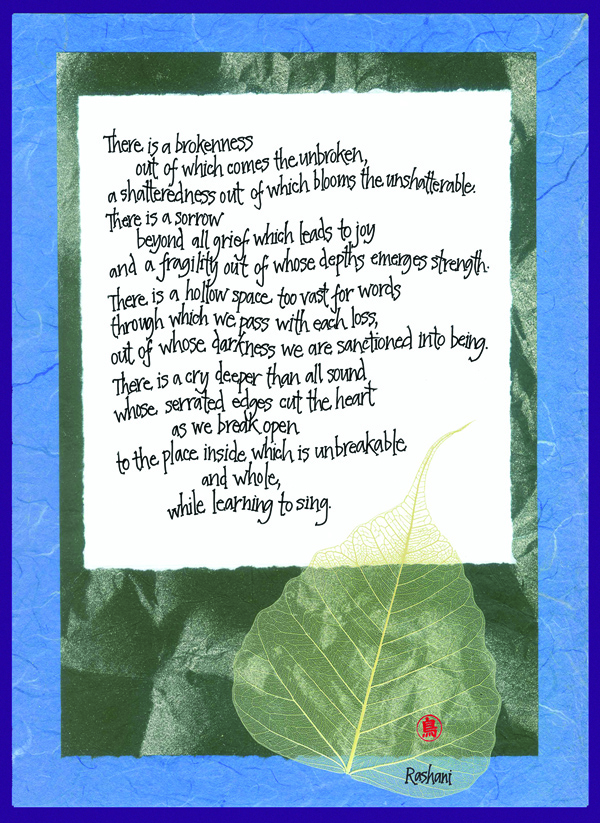 There is a brokenness
out of which comes the unbroken,
a shatteredness out of which blooms the unshatterable.
There is a sorrow
beyond all grief which leads to joy
and a fragility out of whose depths emerges strength.
There is a hollow space too vast for words
through which we pass with each loss,
out of whose darkness we are sanctioned into being.
There is a cry deeper than all sound
whose serrated edges cut the heart
as we break open
to the place inside which is unbreakable
and whole,
while learning to sing.
鳥
Rashani